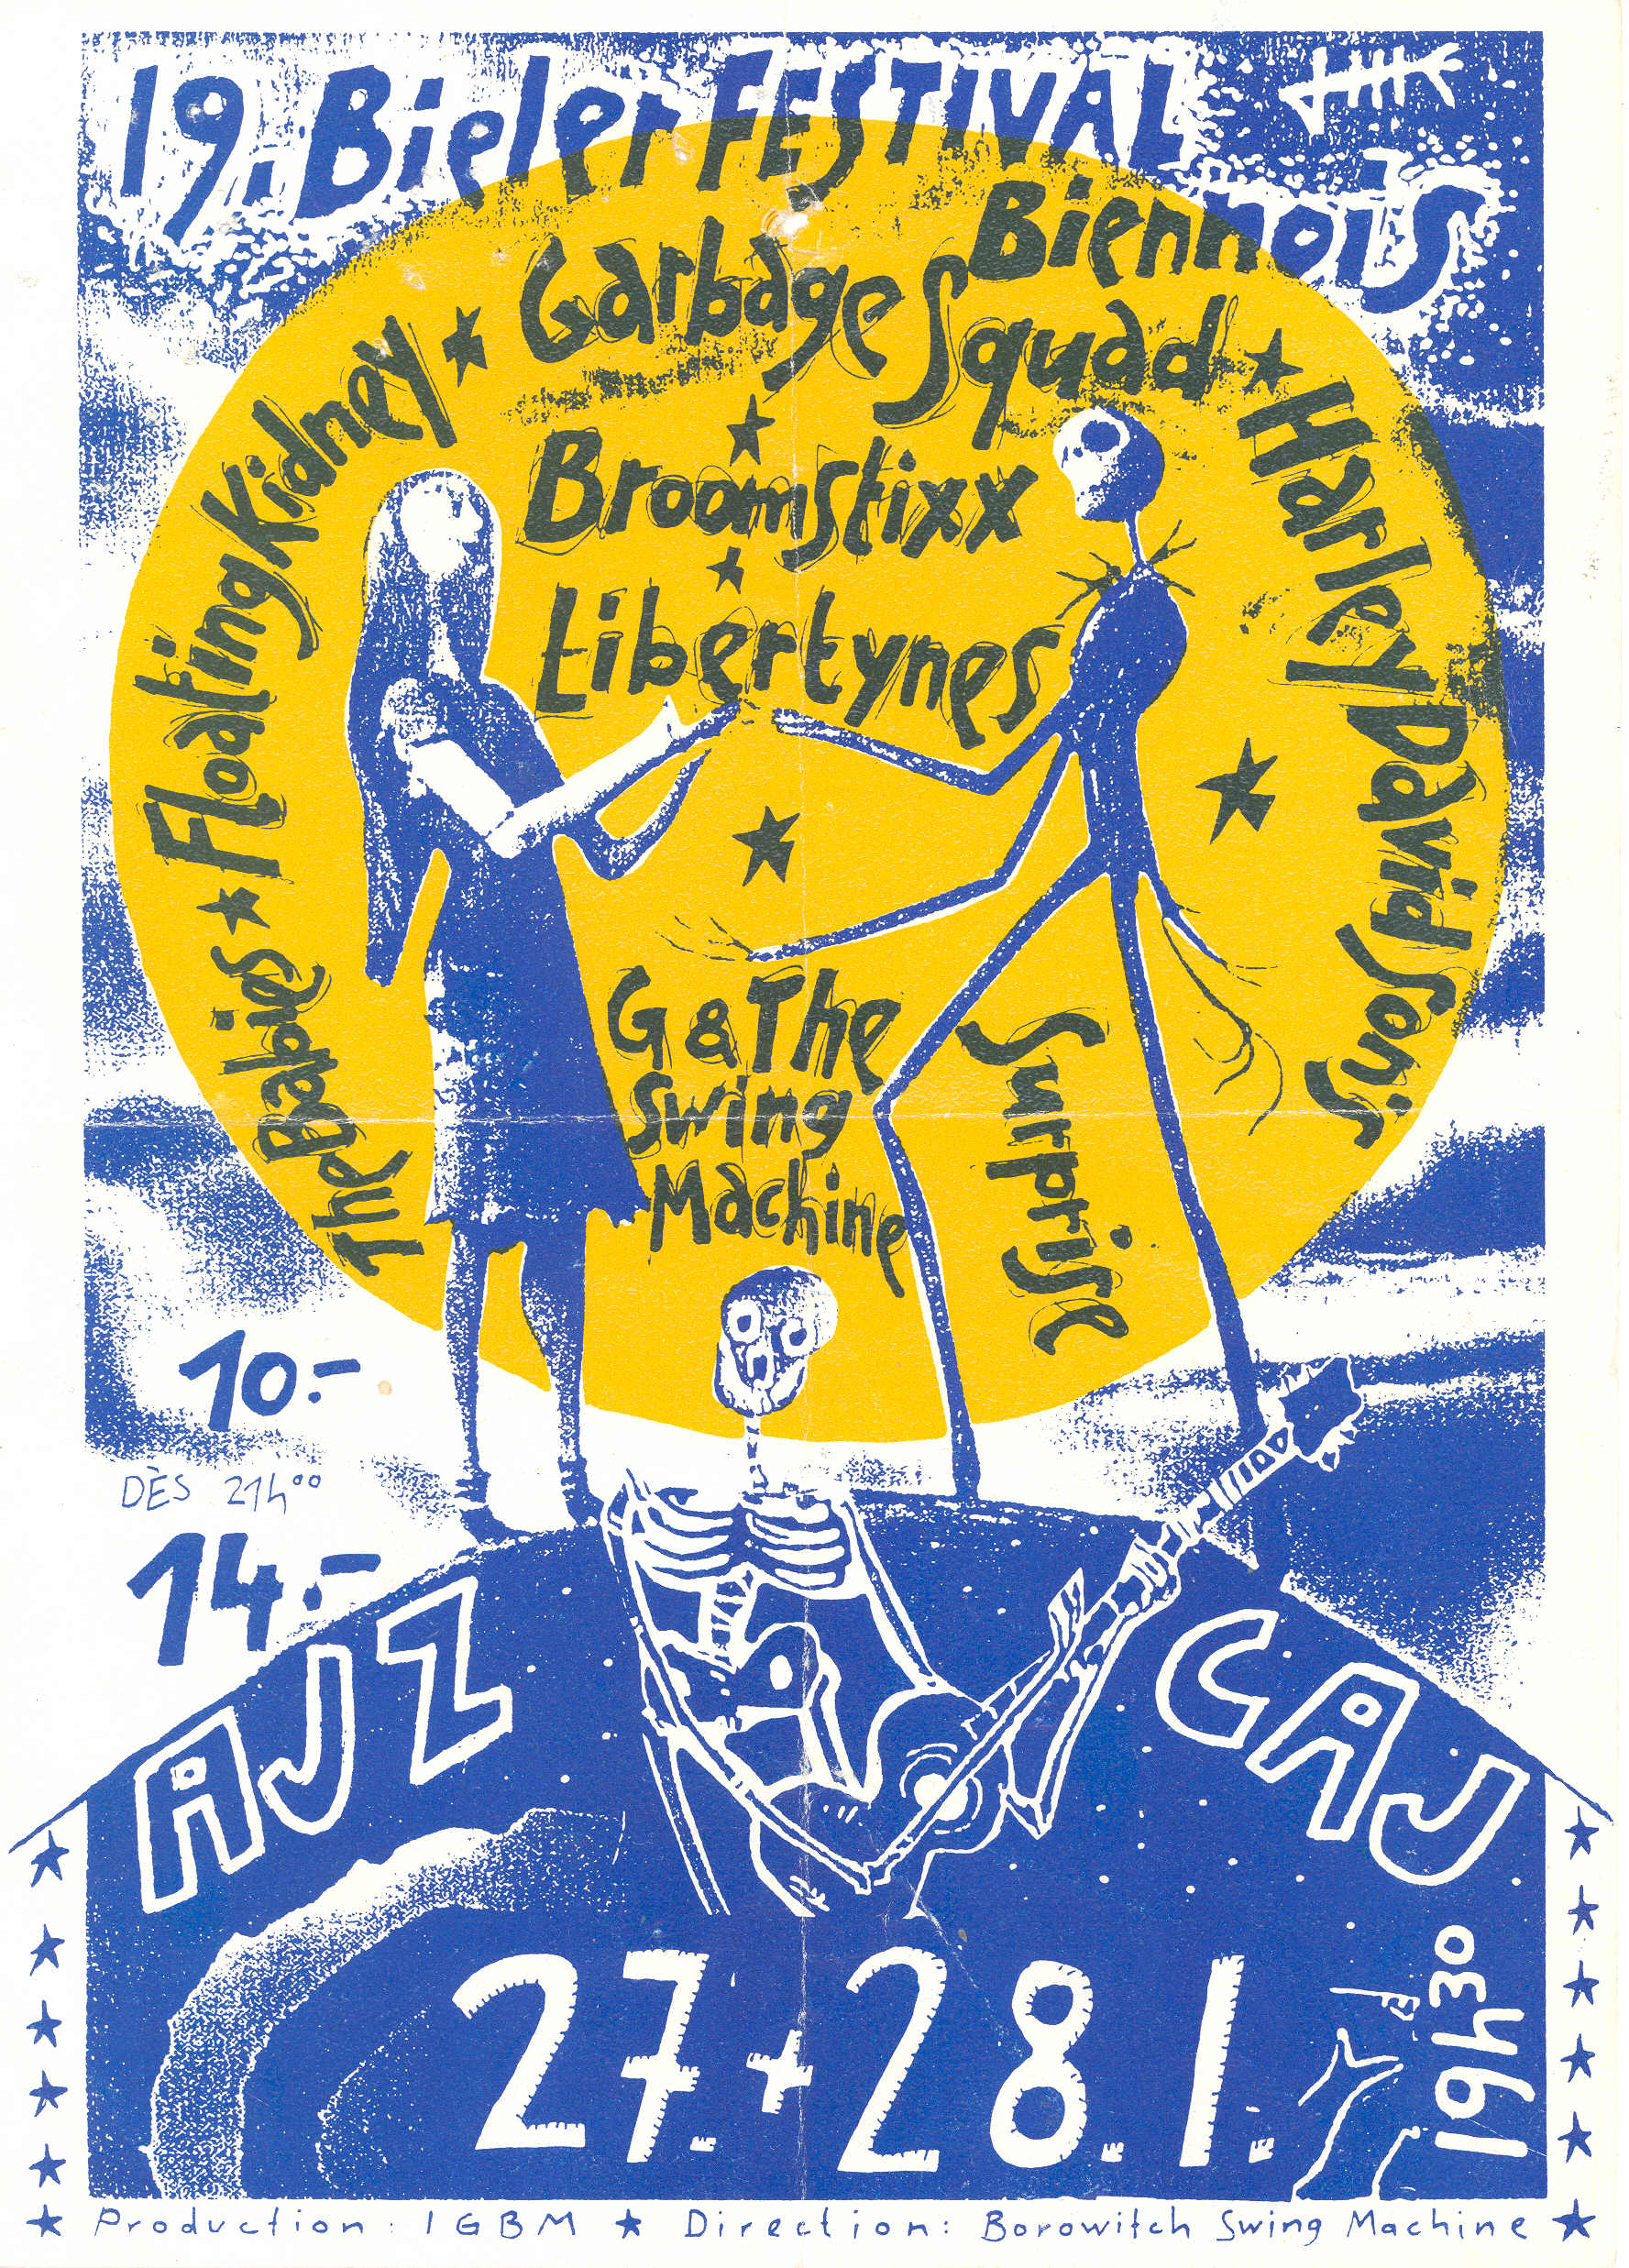 19. Bieler FESTIVAL
Biennois
The Babies ★ Floating Kidney ★ Garbage Squad ★ Harley David Son's
★
Broomstixx
★
Libertynes
★
★
G & The
Swing
Machine
Surprise
10.-
DÈS 21h00
14.-
AJZ
CAJ
27. + 28. 1.
19h30
★ Production: IGBM ★ Direction: Borowitch Swing Machine ★